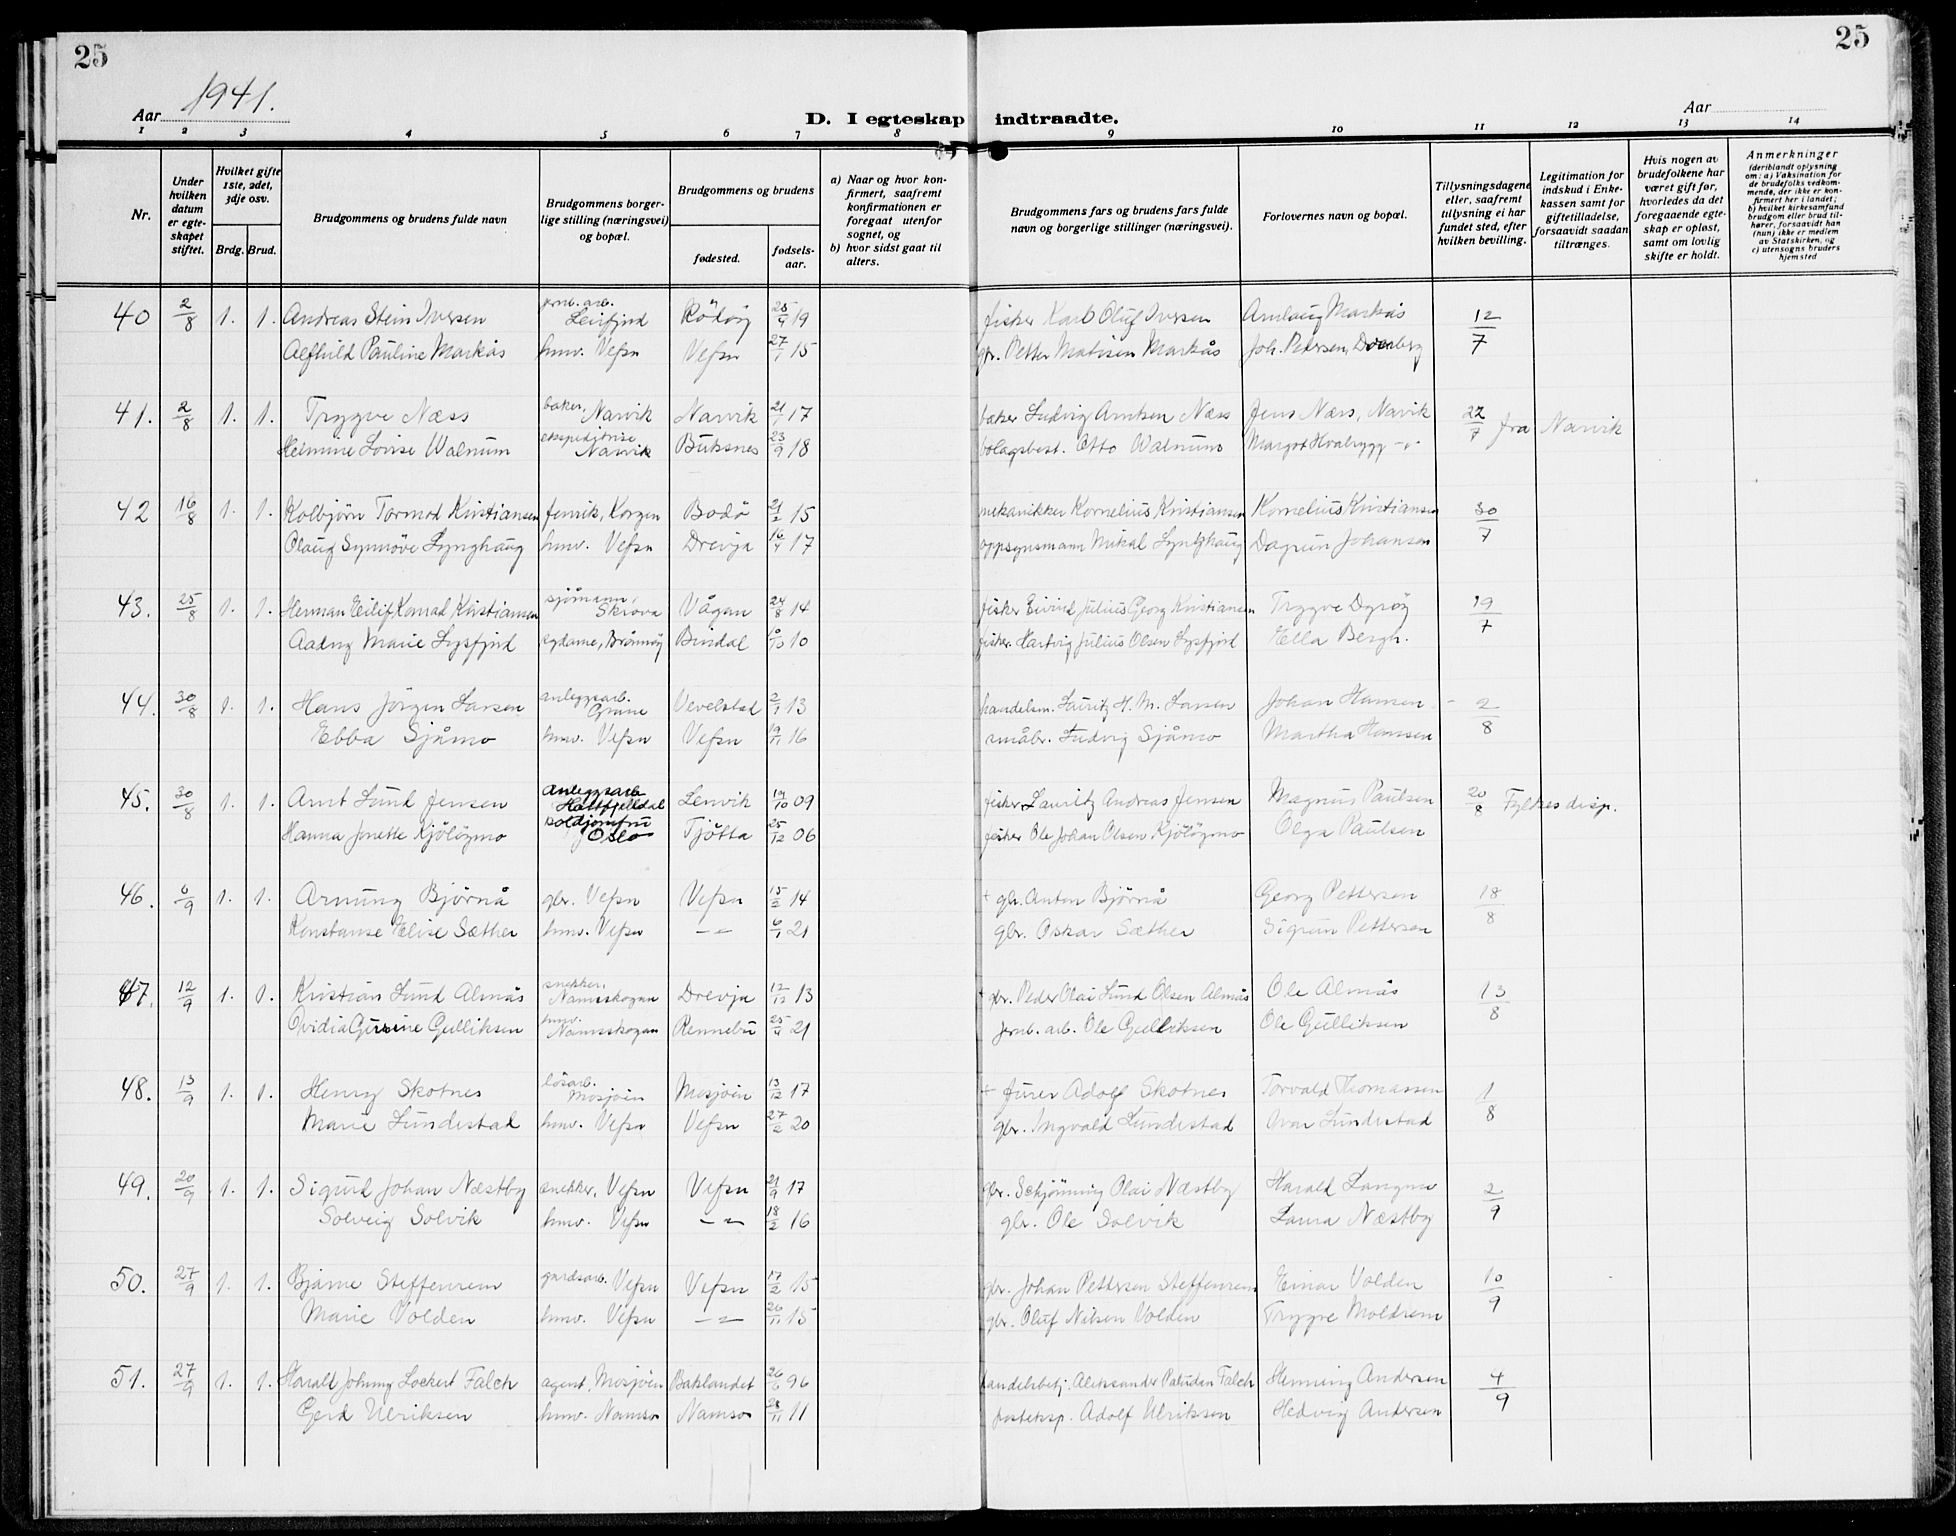 25
25
Aar 1941.
D. I egteskap indtraadte.
Aar
1 2 3 4 5 6 7 8 9 10 11 12 13 14
Nr.
Under hvilken datum er egteskapet stiftet.
Hvilket gifte 1ste, 2det, 3dje osv.
Brdg. Brud.
Brudgommens og brudens fulde navn
Brudgommens borgerlige stilling (næringsvei) og bopæl.
Brudgommens og brudens
fødested.
fødselsaar.
a) Naar og hvor konfirmert, saafremt konfirmationen er foregaat utenfor sognet, og
b) hvor sidst gaat til alters.
Brudgommens fars og brudens fars fulde navn og borgerlige stillinger (næringsvei).
Forlovernes navn og bopæl.
Tillysningsdagene eller, saafremt tillysning ei har fundet sted, efter hvilken bevilling.
Legitimation for indskud i Enkekassen samt for giftetilladelse, forsaavidt saadan tiltrænges.
Hvis nogen av brudefolkene har været gift før, hvorledes da det foregaaende egteskap er opløst, samt om lovlig skifte er holdt.
Anmerkninger (deriblandt oplysning om: a) Vaksination for de brudefolks vedkommende, der ikke er konfirmert her i landet; b) hvilket kirkesamfund brudgom eller brud tilhører, forsaavidt han (hun) ikke er medlem av Statskirken, og c) utensogns bruders hjemsted
40 2/8 1. 1. Andreas Stein Iversen jernb. arb. Leirfjord Rödöy 25/9 19 fisker Karl Oluf Iversen Arnlaug Markås 12/7
Alfhild Pauline Markås hmv. Vefsn Vefsn 27/1 15 gbr. Petter Matisen Markås Joh. Pedersen
41. 2/8 1. 1. Trygve Næss baker, Narvik Narvik 21/1 17 baker Ludvig Arntsen Næss Jens Næss, Narvik 22/7 fra Narvik
Helmine Lovise Walnum ekspeditrise Narvik Buksnes 23/9 18 bolagsbest. Otto Walnum Margot
42 16/8 1. 1. Kolbjörn Tormod Kristiansen fenrik, Korgen Bodö 21/2 15 mekanikker Kornelius Kristiansen Kornelius Kristiansen 30/7
Olaug Synnöve Lynghaug hmv. Vefsn Drevja 16/4 17 oppsynsmann Mikal Lynghaug Dagrun Johanson
43. 25/8 1. 1. Herman Eilif Konrad Kristiansen sjömann, Skrova Vågan 24/8 14 fisker Eivind Julius Georg Kristiansen Trygve Dyröy 19/7
Aadny Marie Lysfjord sydame, Brönnöy Bindal 6/10 10 fisker Hartvig Julius Olsen Lysfjord Hella Bergh.
44. 30/8 1. 1. Hans Jörgen Larsen anleggsarb. Grane Vevelstad 2/1 13 handelsm. Lauritz H. M. Larsen Johan Hansen 2/8
Ebba Sjåmo hmv. Vefsn Vefsn 19/11 16 småbr. Ludvig Sjåmo Martha Hansen
45. 30/8 1. 1. Arnt Lund Jensen anleggsarb. Hattfjelldal Lenvik 19/10 09 fisker Lauritz Andreas Jensen Magnus Paulsen 20/8 Fylkes disp.
Hanna Jonette Kjölögmo koldjomfru Oslo Tjötta 25/12 06 fisker Ole Johan Olsen Kjölögmo Olga Paulsen
46. 6/9 1. 1. Arnung Björnå gbr. Vefsn Vefsn 15/2 14 + gbr. Anton Björnå Georg Pettersen 18/8
Konstanse Elise Sæther hmv. Vefsn -"- 6/1 21 gbr. Oskar Sæther Sigrun Pettersen
47. 12/9 1. 1. Kristian Lund Almås snekker, Namsskogan Drevja 12/12 13 gbr. Peder Olai Lund Olsen Almås Ole Almås 13/8
Ovidia Gusine Gulliksen hmv. Namsskogan Rennebu 25/4 21 jernb. arb. Ole Gulliksen Ole Gulliksen
48. 13/9 1. 1. Henry Skotnes lösarb. Mosjöen Mosjöen 13/12 17 + fürer Adolf Skotnes Torvald Thomassen 1/8
Marie Lundestad hmv. Vefsn Vefsn 27/2 20 gbr. Ingvald Lundestad Ivar Lundestad
49. 20/9 1. 1. Sigurd Johan Næstby snekker, Vefsn Vefsn 21/9 17 gbr. Schjönning Olai Næstby Harald Langmo 2/9
Solveig Solvik hmv. Vefsn -"- 18/2 16 gbr. Ole Solvik Laura Næstby
50. 27/9 1. 1. Bjarne Steffenrem gardsarb. Vefsn Vefsn 17/2 15 gbr. Johan Pettersen Steffenrem Einar Volden 10/9
Marie Volden hmv. Vefsn -"- 26/11 15 gbr. Oluf Nilsen Volden Trygve Moldrem
51. 27/9 1. 1. Harald Johnny Lockert Falch agent, Mosjöen Baklandet 26/6 96 handelsbetj. Aleksander Paludan Falch Henning Andersen 4/9
Gerd Ulriksen hmv. Namsos Namsos 28/11 11 posteksp. Adolf Ulriksen Hedvig Andersen